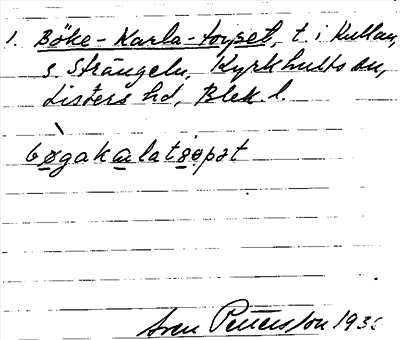 1. Böke-Karla-torpet, t. i Kullan,
s. Strängeln, Kyrkhults sn,
Listers hd, Blek. l.
bøgakalatsopət
Sven Pettersson 193